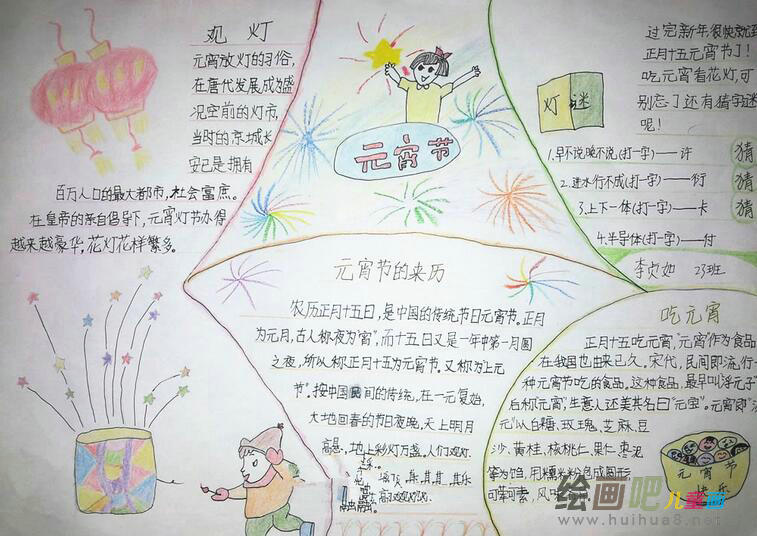 观灯
元宵放灯的习俗,
在唐代发展成为盛
况空前的灯市,
当时的京城长
安已是拥有
百万人口的最大都市,社会富庶。
在皇帝的亲自倡导下,元宵灯节办得
越来越豪华,花灯花样繁多。
元宵节
过完新年,很快就到
正月十五元宵节了!
吃元宵看花灯,可
别忘了还有猜字谜
呢!
灯谜
1.早不说晚不说(打一字)——许
2.逮水行不成(打一字)——衍
3.上下一体(打一字)——卡
4.半导体(打一字)——付
猜
猜
猜
李贞如 23班
元宵节的来历
农历正月十五日,是中国的传统节日元宵节。正月
为元月,古人称夜为"宵",而十五日又是一年中第一月圆
之夜,所以称正月十五为元宵节。又称为上元
节"。按中国民间的传统,在一元复始,
大地回春的节日夜晚,天上明月
高悬,地上彩灯万盏,人们观灯
其乐
吃元宵
正月十五吃元宵,"元宵"作为食品
在我国也由来已久。宋代,民间即流行一
种元宵节吃的食品。这种食品,最早叫"浮元子"
后称"元宵",生意人还美其名曰"元宝"。元宵即"汤
以白糖、玫瑰、芝麻、豆
沙、黄桂、核桃仁、果仁、枣泥
等为馅,用糯米粉包成圆形
可荤可素,风
元宵节
快乐
绘画吧儿童画
www.huihua8.net